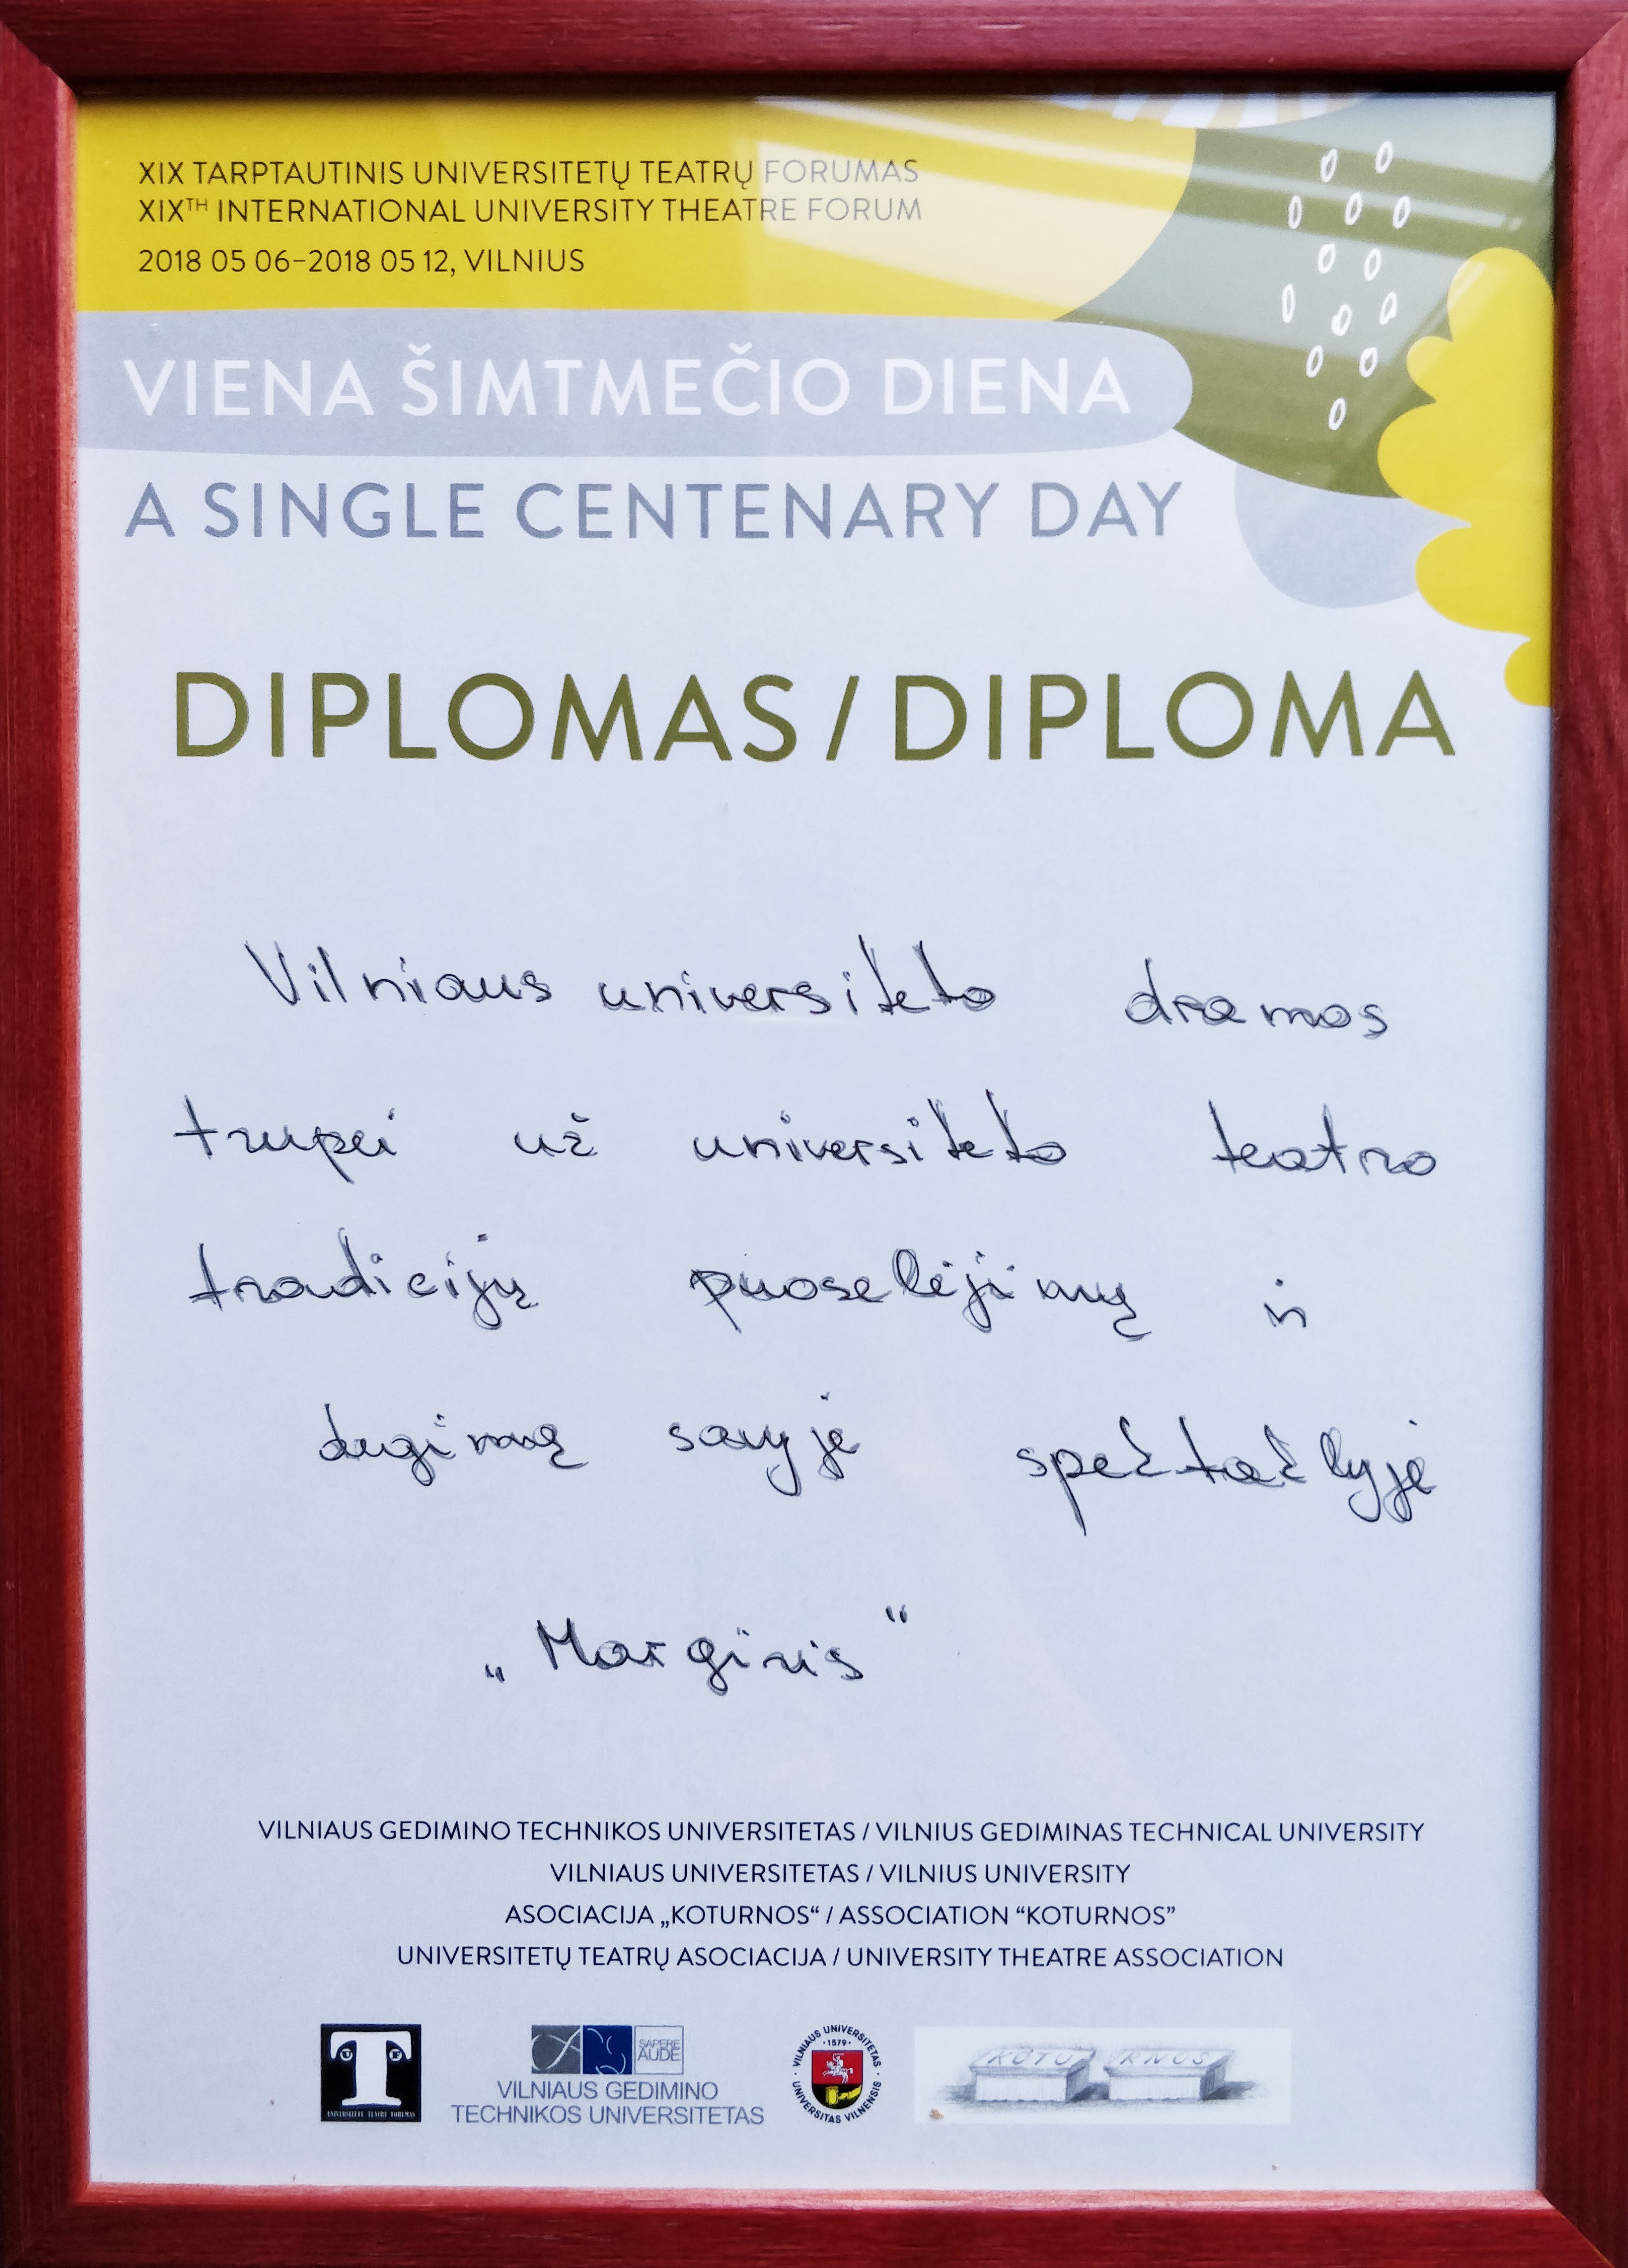 XIX TARPTAUTINIS UNIVERSITETŲ TEATRŲ FORUMAS
XIXTH INTERNATIONAL UNIVERSITY THEATRE FORUM
2018 05 06–2018 05 12, VILNIUS
VIENA ŠIMTMEČIO DIENA
A SINGLE CENTENARY DAY
DIPLOMAS / DIPLOMA
Vilniaus universiteto dramos
trupei už universiteto teatro
tradicijų puoselėjimą ir
degimą savyje spektaklyje
„Margiris“
VILNIAUS GEDIMINO TECHNIKOS UNIVERSITETAS / VILNIUS GEDIMINAS TECHNICAL UNIVERSITY
VILNIAUS UNIVERSITETAS / VILNIUS UNIVERSITY
ASOCIACIJA „KOTURNOS“ / ASSOCIATION “KOTURNOS”
UNIVERSITETŲ TEATRŲ ASOCIACIJA / UNIVERSITY THEATRE ASSOCIATION
T
U F
UNIVERSITETŲ TEATRŲ FORUMAS
SAPERE
AUDE
VILNIAUS GEDIMINO
TECHNIKOS UNIVERSITETAS
VILNIAUS UNIVERSITETAS
·1579·
UNIVERSITAS VILNENSIS
KOTURNOS